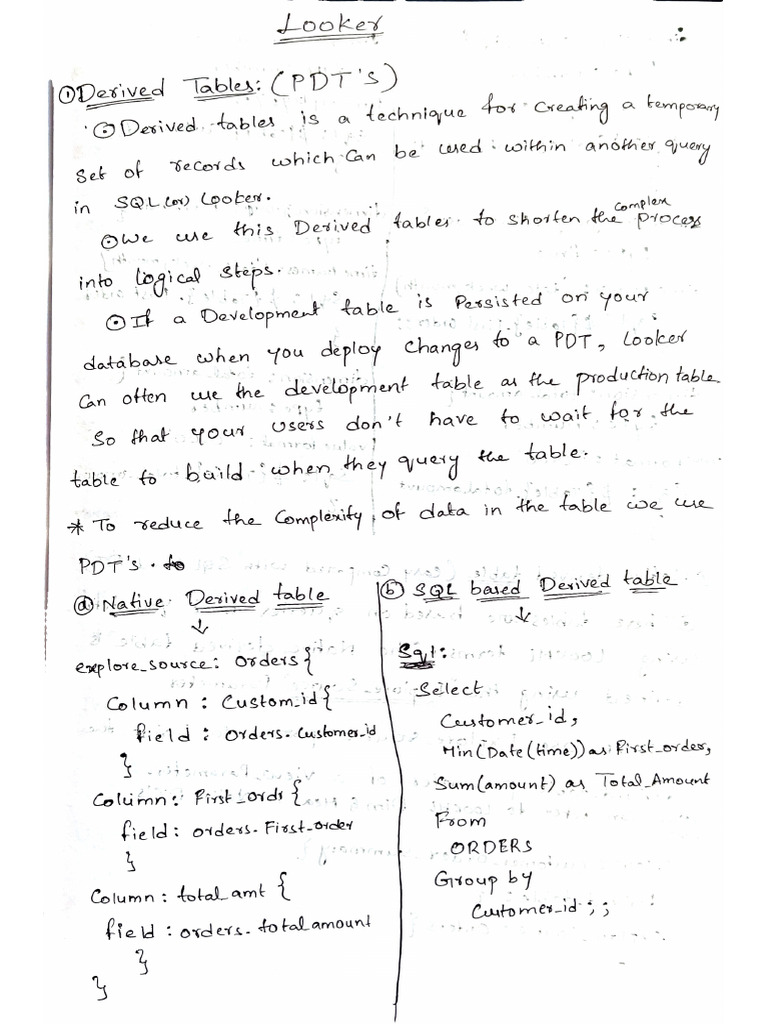 Looker
① Derived Tables: (PDT's)
⊙ Derived tables is a technique for Creating a temporary
Set of records which can be used within another query
in SQL (or) Looker.
⊙ We use this Derived tables to shorten the complex process
into logical steps.
⊙ If a Development table is Persisted on your
database when you deploy changes to a PDT, Looker
Can often use the development table as the production table
So that your users don't have to wait for the
table to build when they query the table.
* To reduce the Complexity of data in the table we use
PDT's. to
ⓐ Native Derived table
↓
explore_source: orders {
Column : Custom_id {
field : orders.customer_id
}
Column: First_ordr {
field: orders.First_order
}
Column: total_amt {
field : orders.total amount
}
}
ⓑ SQL based Derived table
↓
Sql:
Select
Customer_id,
Min(Date(time)) as First_order,
Sum(amount) as Total_Amount
From
ORDERS
Group by
Customer_id ; ;